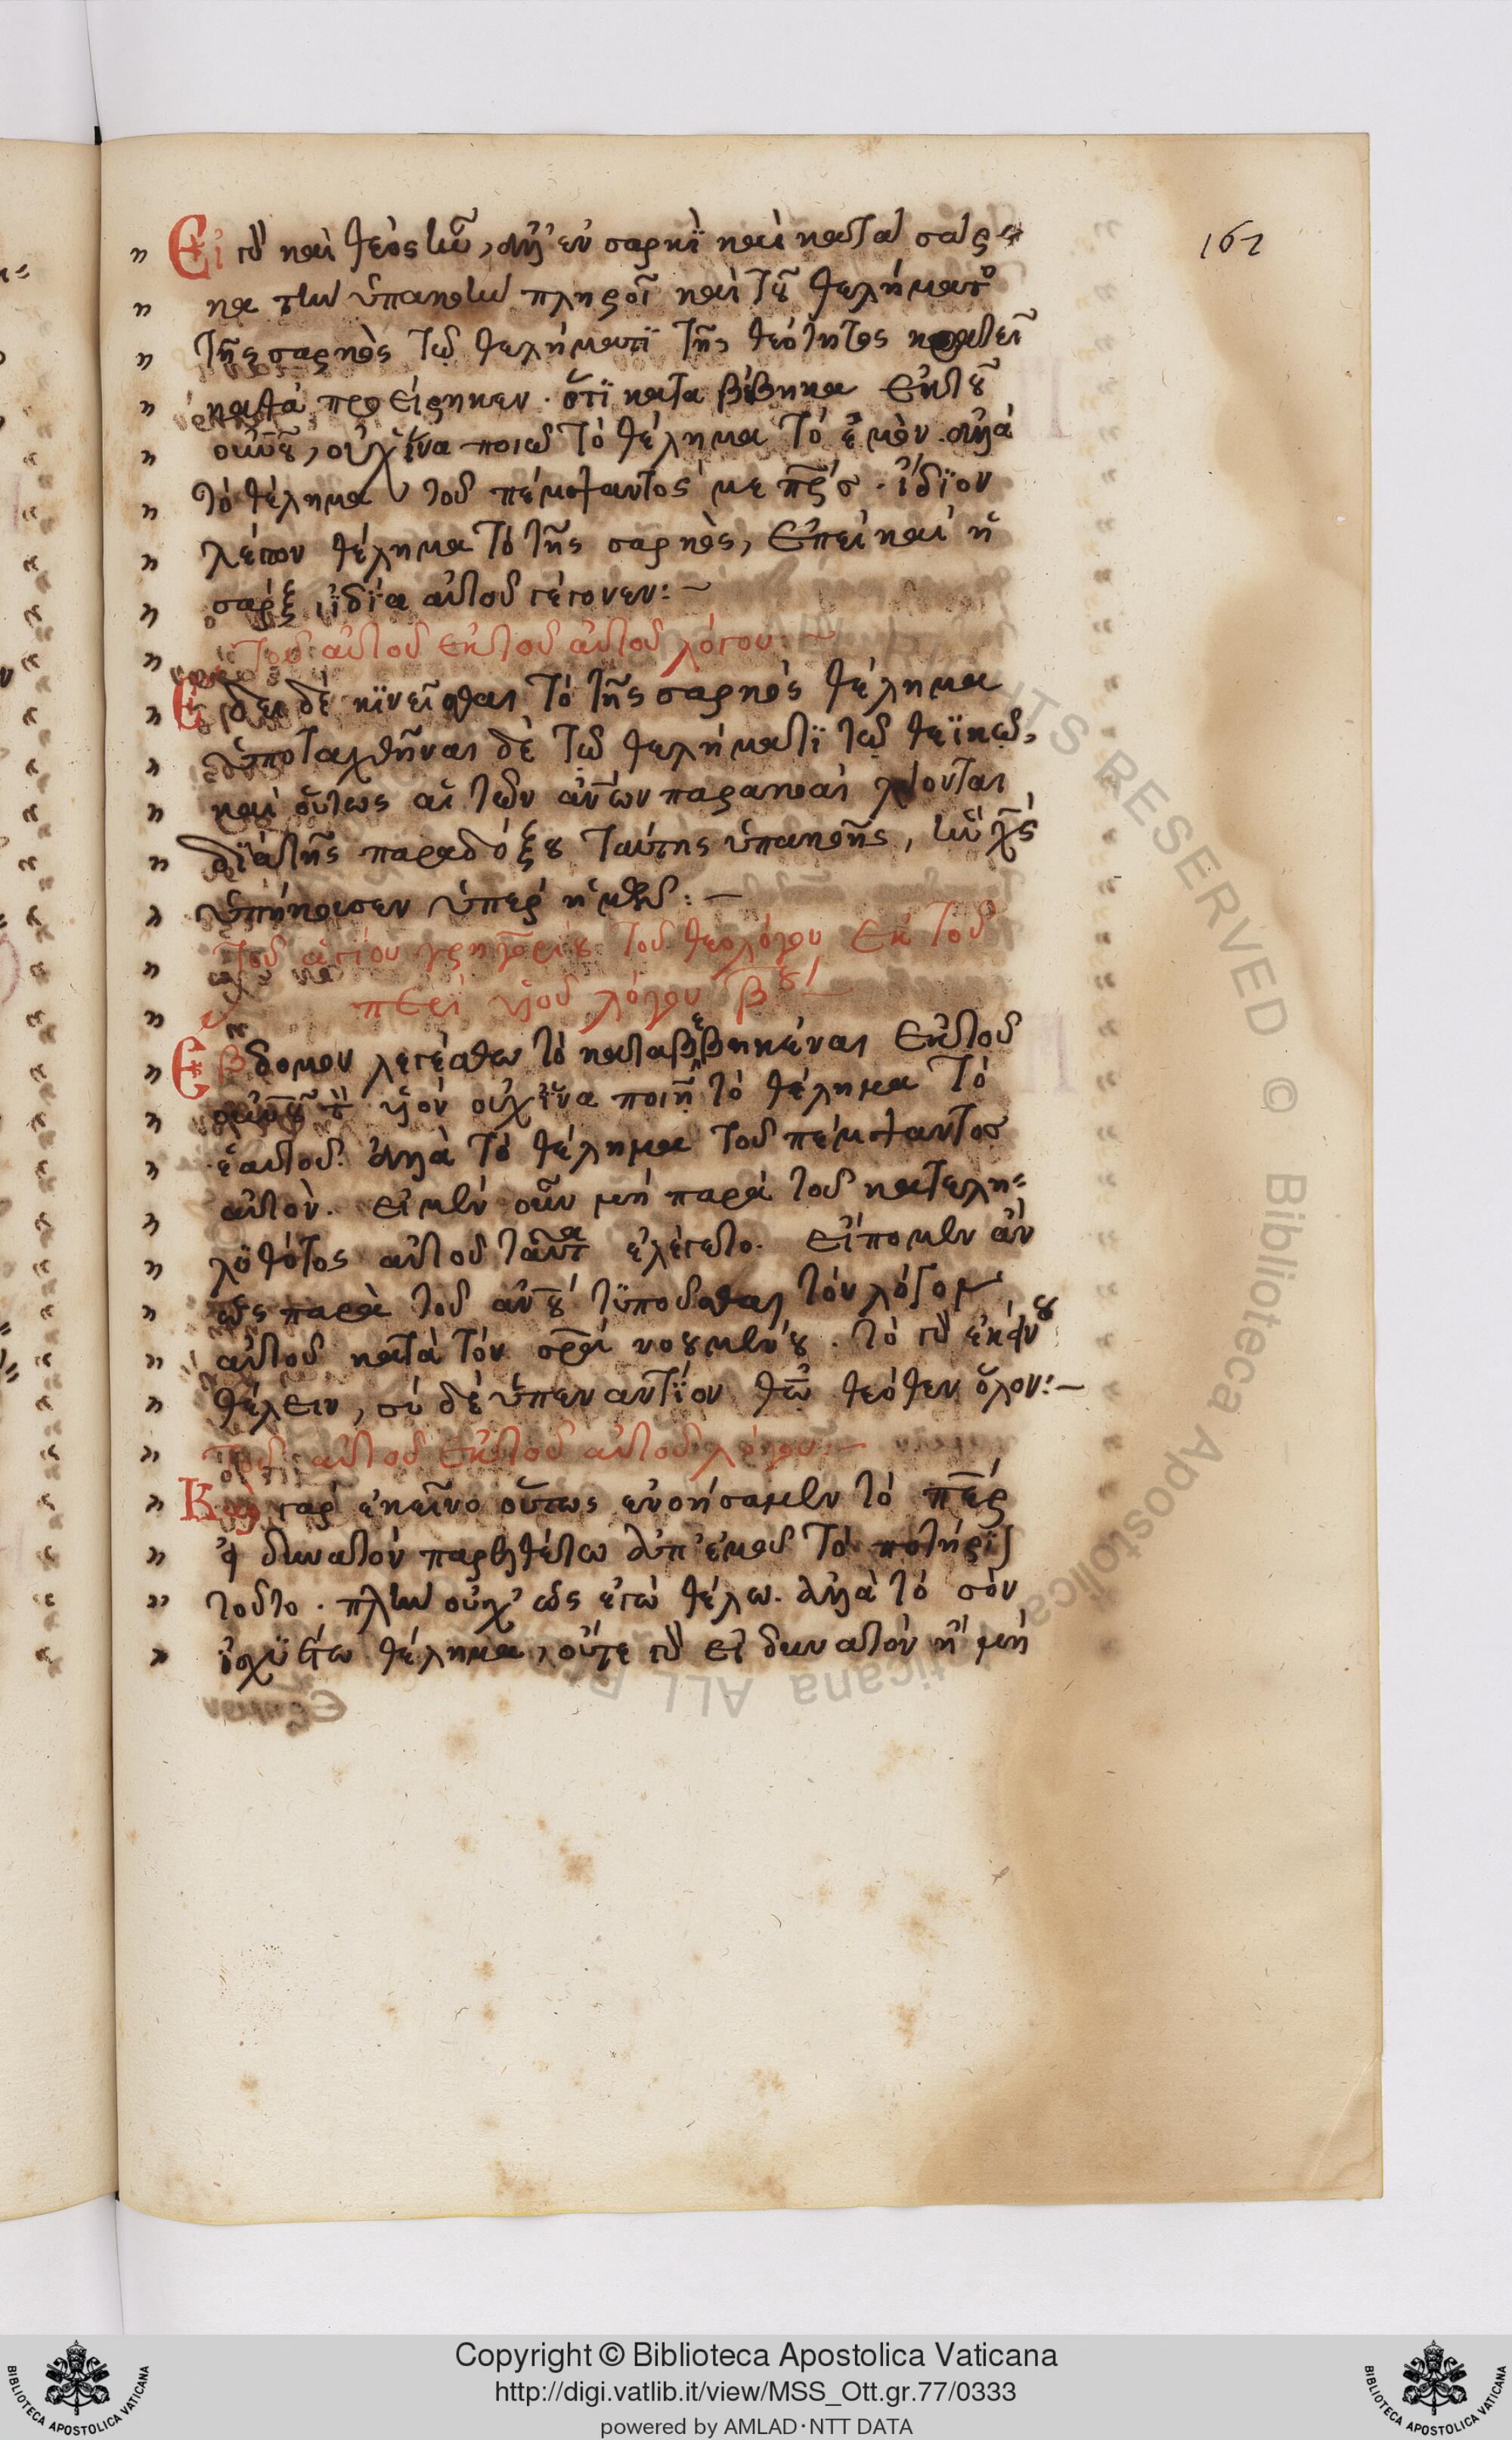 162
Εἰ γὰρ καὶ θεὸς ἦν, ἀλλ' ἐν σαρκὶ καὶ κατὰ σάρ
κα τὴν ὑπακοὴν πληροῖ καὶ τοῦ θελήματος
τῆς σαρκὸς τῶ θελήματι τῆς θεότητος κρατεῖ
καθὰ προείρηκεν. ὅτι καταβέβηκα ἐκ τοῦ
οὐνοῦ, οὐχ ἵνα ποιῶ τὸ θέλημα τὸ ἐμὸν. ἀλλὰ
τὸ θέλημα τοῦ πέμψαντός με πρς. ἴδιον
λέγον θέλημα τὸ τῆς σαρκὸς, ἐπεὶ καὶ ἡ
σάρξ ἰδία αὐτοῦ γέγονεν:~
Τοῦ αὐτοῦ ἐκ τοῦ αὐτοῦ λόγου:~
Ἔδει δὲ κινεῖσθαι τὸ τῆς σαρκὸς θέλημα
ὑποταχθῆναι δὲ τῶ θελήματι τῶ θεϊκῶ,
καὶ οὕτως αἱ τῶν ἀνων παρακοαὶ λύονται
διὰ τῆς παραδόξου ταύτης ὑπακοῆς, ἣν χς
ὑπήκουσεν ὑπὲρ ἡμῶν:—
Τοῦ ἁγίου γρηγορίου τοῦ θεολόγου ἐκ τοῦ
περὶ υἱοῦ λόγου βου
Ἕβδομον λεγέσθω τὸ καταβεβηκέναι ἐκ τοῦ
οὐνοῦ τὸν υἱὸν οὐχ ἵνα ποιῆ τὸ θέλημα τὸ
ἑαυτοῦ. ἀλλὰ τὸ θέλημα τοῦ πέμψαντος
αὐτὸν. εἰ μὲν οὖν μὴ παρὰ τοῦ κατελη=
λυθότος αὐτοῦ ταῦτα ἐλέγετο. εἴπομεν ἂν
ὡς παρὰ τοῦ ἀνου τυποῦσθαι τὸν λόγον
αὐτοῦ κατὰ τὸν σραι νοουμένου. τὸ γὰρ ἐκείνου
θέλειν, οὐδὲ ὑπεναντίον θῶ θεόθεν ὅλον:—
Τοῦ αὐτοῦ ἐκ τοῦ αὐτοῦ λόγου:—
Καὶ γὰρ ἐκεῖνο οὕτως ἐνοήσαμεν τὸ περ
εἰ δυνατὸν παρελθέτω ἀπ' ἐμοῦ τὸ ποτήριον
τοῦτο. πλὴν οὐχ' ὡς ἐγὼ θέλω. ἀλλὰ τὸ σὸν
ἰσχυέτω θέλημα, οὔτε γὰρ εἰ δυνατὸν ἢ μὴ
Copyright © Biblioteca Apostolica Vaticana
http://digi.vatlib.it/view/MSS_Ott.gr.77/0333
powered by AMLAD·NTT DATA